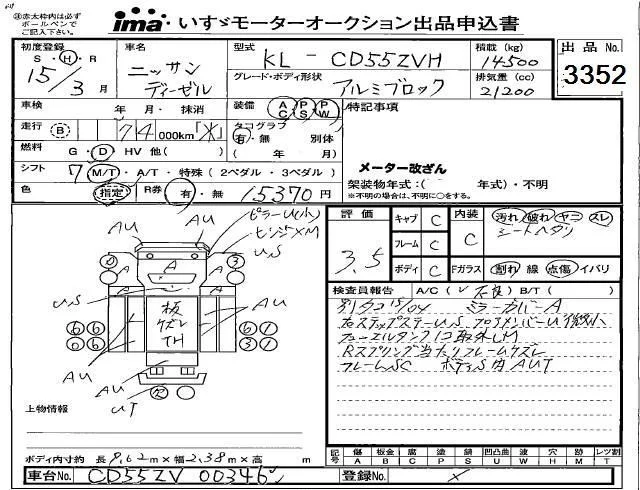 ※赤太枠内は必ず
ボールペンで
ご記入下さい。
ima いすゞモーターオークション出品申込書
初度登録 車名 型式 積載 (kg) 出品No.
S・H・R ニッサン KL - CD55ZVH 14500 3352
15/3月 ディーゼル グレード・ボディ形状 排気量 (cc)
アルミブロック 21200
車検 年 月・抹消 装備 AC PS PW 特記事項
走行 B 74 000km「 」 タコグラフ 有・無 別体
燃料 G・D・HV 他( ) ( 年 月)
シフト 7 M/T・A/T・特殊(2ペダル・3ペダル) メーター改ざん
架装物年式:( 年式)・不明
色 指定 R券 有・無 15370円 ※不明の場合は、不明に○をする。
評価 キャブ C 内装 汚れ 破れ ヤニ スレ
3.5 フレーム C C シートヘタリ
ボディ C Fガラス 割れ 線 点傷 イバリ
AU ピラーU(小)
AU ヒンジXM
U.S
検査員報告 A/C(レ不良) B/T( )
別タコ15/04 ミラーカバーA
Rスプリング当たりフレームケズレ
フレームSC ボディS内AUT
板
ケズレ
TH
AU
US
AU
AU
AU
UT
上物情報
ボディ内寸約 長 9.62m×幅 2.38m×高 m
記号 傷A 板金B 腐C 塗P 錆S 凹凸曲U 波W 穴H 要M レツ割T
車台No. CD55ZV 00346 登録No.